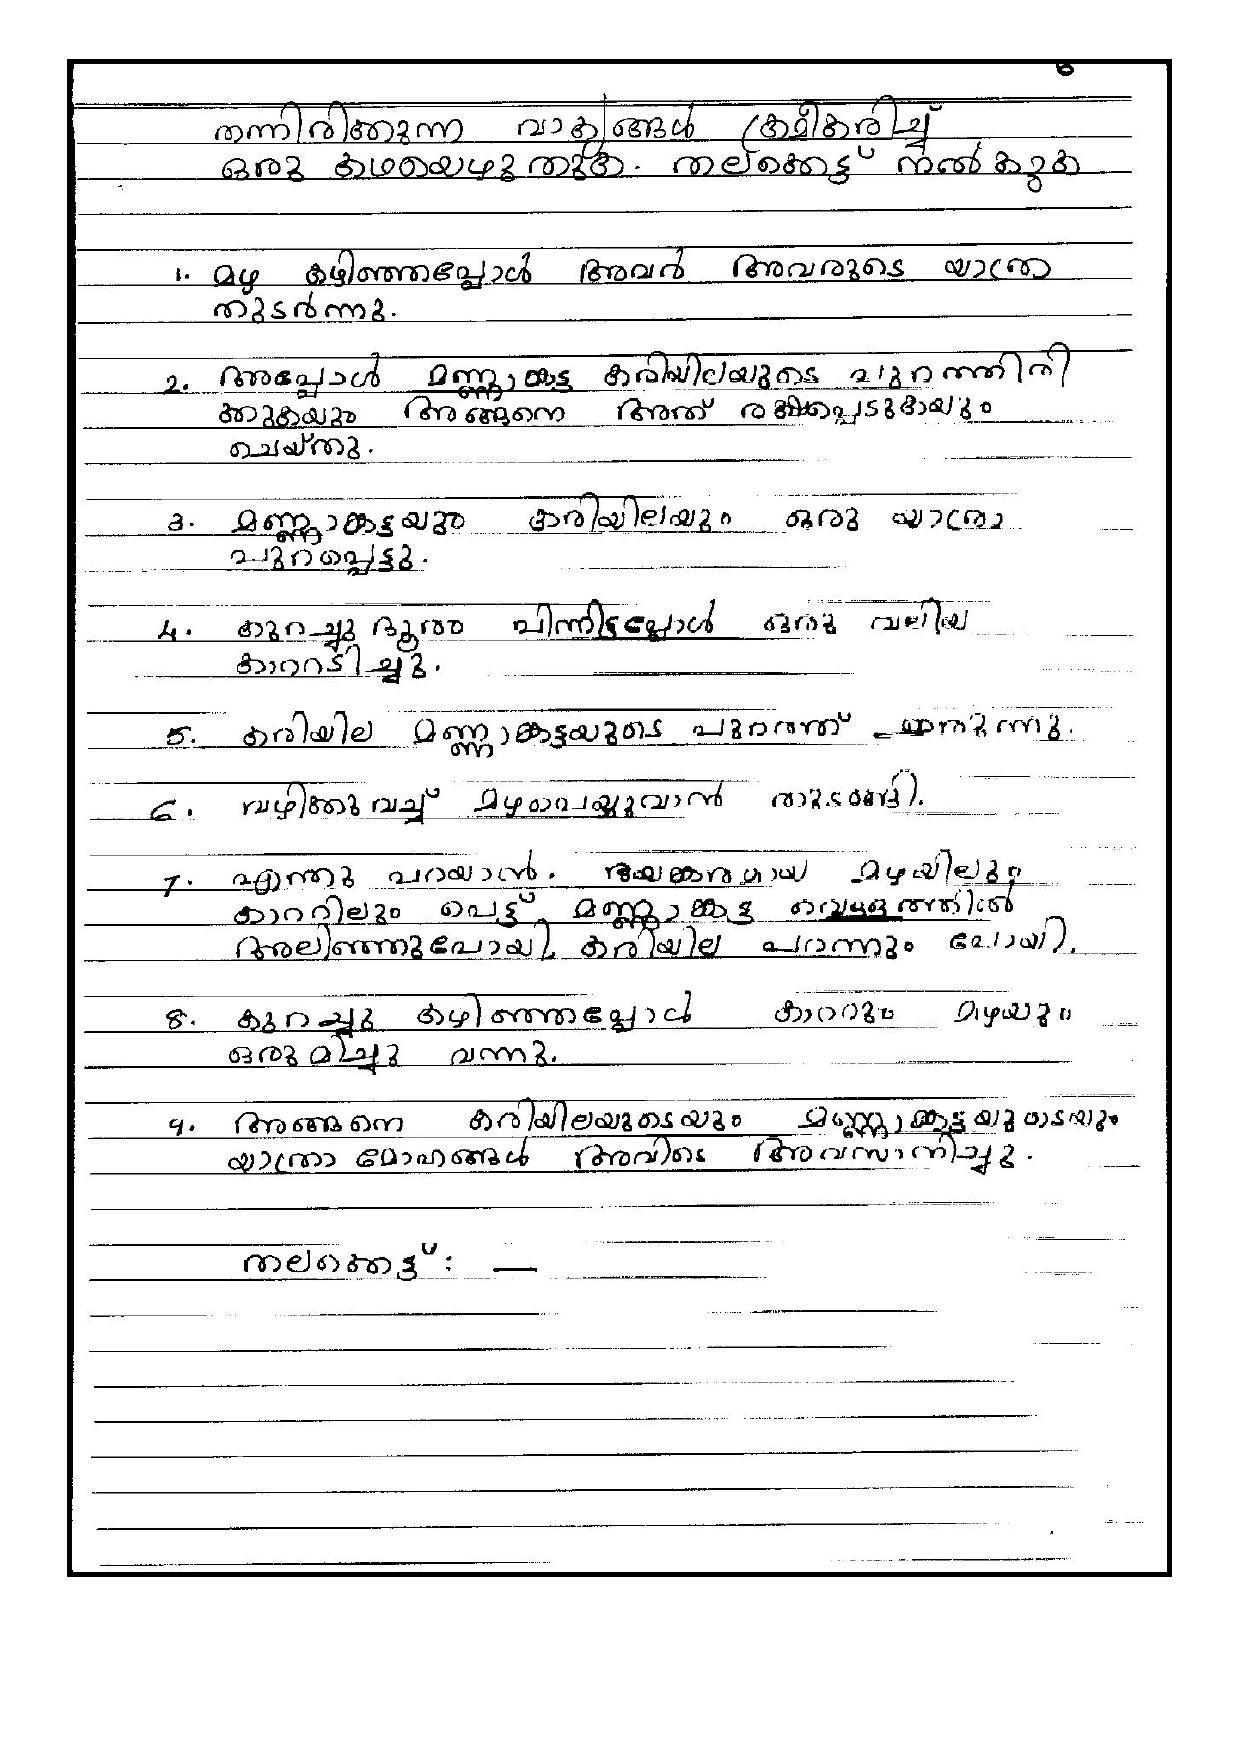 6
തന്നിരിക്കുന്ന വാക്യങ്ങൾ ക്രമീകരിച്ച്
ഒരു കഥയെഴുതുക. തലക്കെട്ട് നൽകുക
1. മഴ കഴിഞ്ഞപ്പോൾ അവർ അവരുടെ യാത്ര
തുടർന്നു.
2. അപ്പോൾ മണ്ണാങ്കട്ട കരിയിലയുടെ പുറത്തിരി
ക്കുകയും അങ്ങനെ അത് രക്ഷപ്പെടുകയും
ചെയ്തു.
3. മണ്ണാങ്കട്ടയും കരിയിലയും ഒരു യാത്ര
പുറപ്പെട്ടു.
4. കുറച്ചു ദൂരം പിന്നിട്ടപ്പോൾ ഒരു വലിയ
കാററടിച്ചു.
5. കരിയില മണ്ണാങ്കട്ടയുടെ പുറത്ത് ഇരുന്നു.
6. വഴിക്കുവച്ച് മഴപെയ്യുവാൻ തുടങ്ങി.
7. എന്തു പറയാൻ. ഭയങ്കരമായ മഴയിലും
കാററിലും പെട്ട് മണ്ണാങ്കട്ട വെള്ളത്തിൽ
അലിഞ്ഞുപോയി, കരിയില പറന്നും പോയി.
8. കുറച്ചു കഴിഞ്ഞപ്പോൾ കാററും മഴയും
ഒരുമിച്ചു വന്നു.
9. അങ്ങനെ കരിയിലയുടെയും മണ്ണാങ്കട്ടയുടെയും
യാത്രാ മോഹങ്ങൾ അവിടെ അവസാനിച്ചു.
തലക്കെട്ട് : —